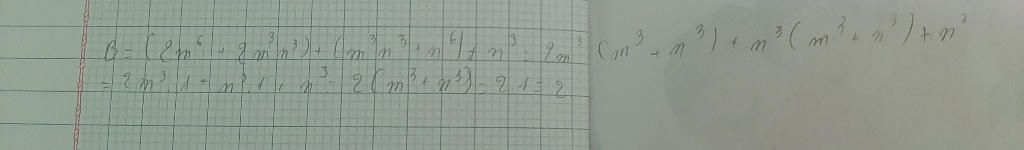 B = (2m⁶ + 2m³n³) + (m³n³ + n⁶) + n³ = 2m³ (m³ + n³) + n³ (m³ + n³) + n³
= 2m³.1 + n³.1 + n³ = 2(m³ + n³) = 2.1 = 2